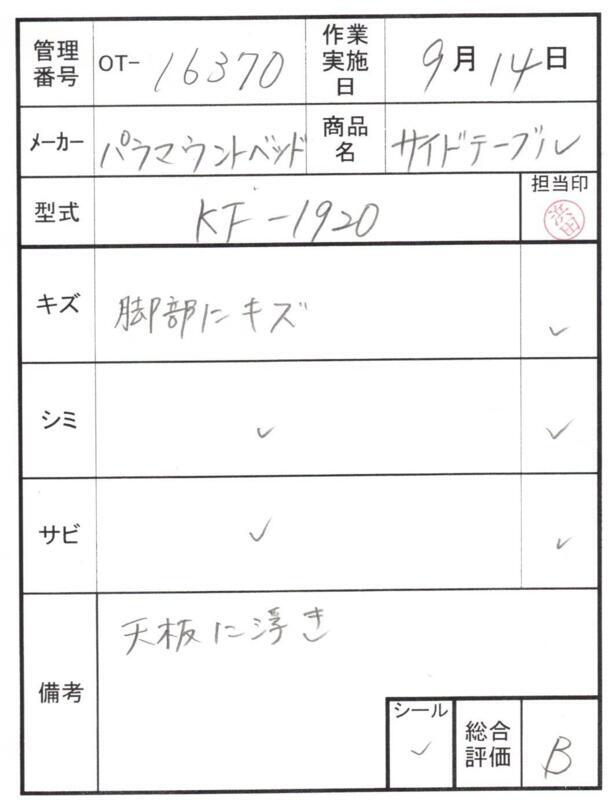 管理番号 OT- 16370 作業実施日 9月14日
メーカー パラマウントベッド 商品名 サイドテーブル
型式 KF-1920 担当印 浜田
キズ 脚部にキズ ✓
シミ ✓ ✓
サビ ✓ ✓
備考 天板に浮き
シール ✓ 総合評価 B